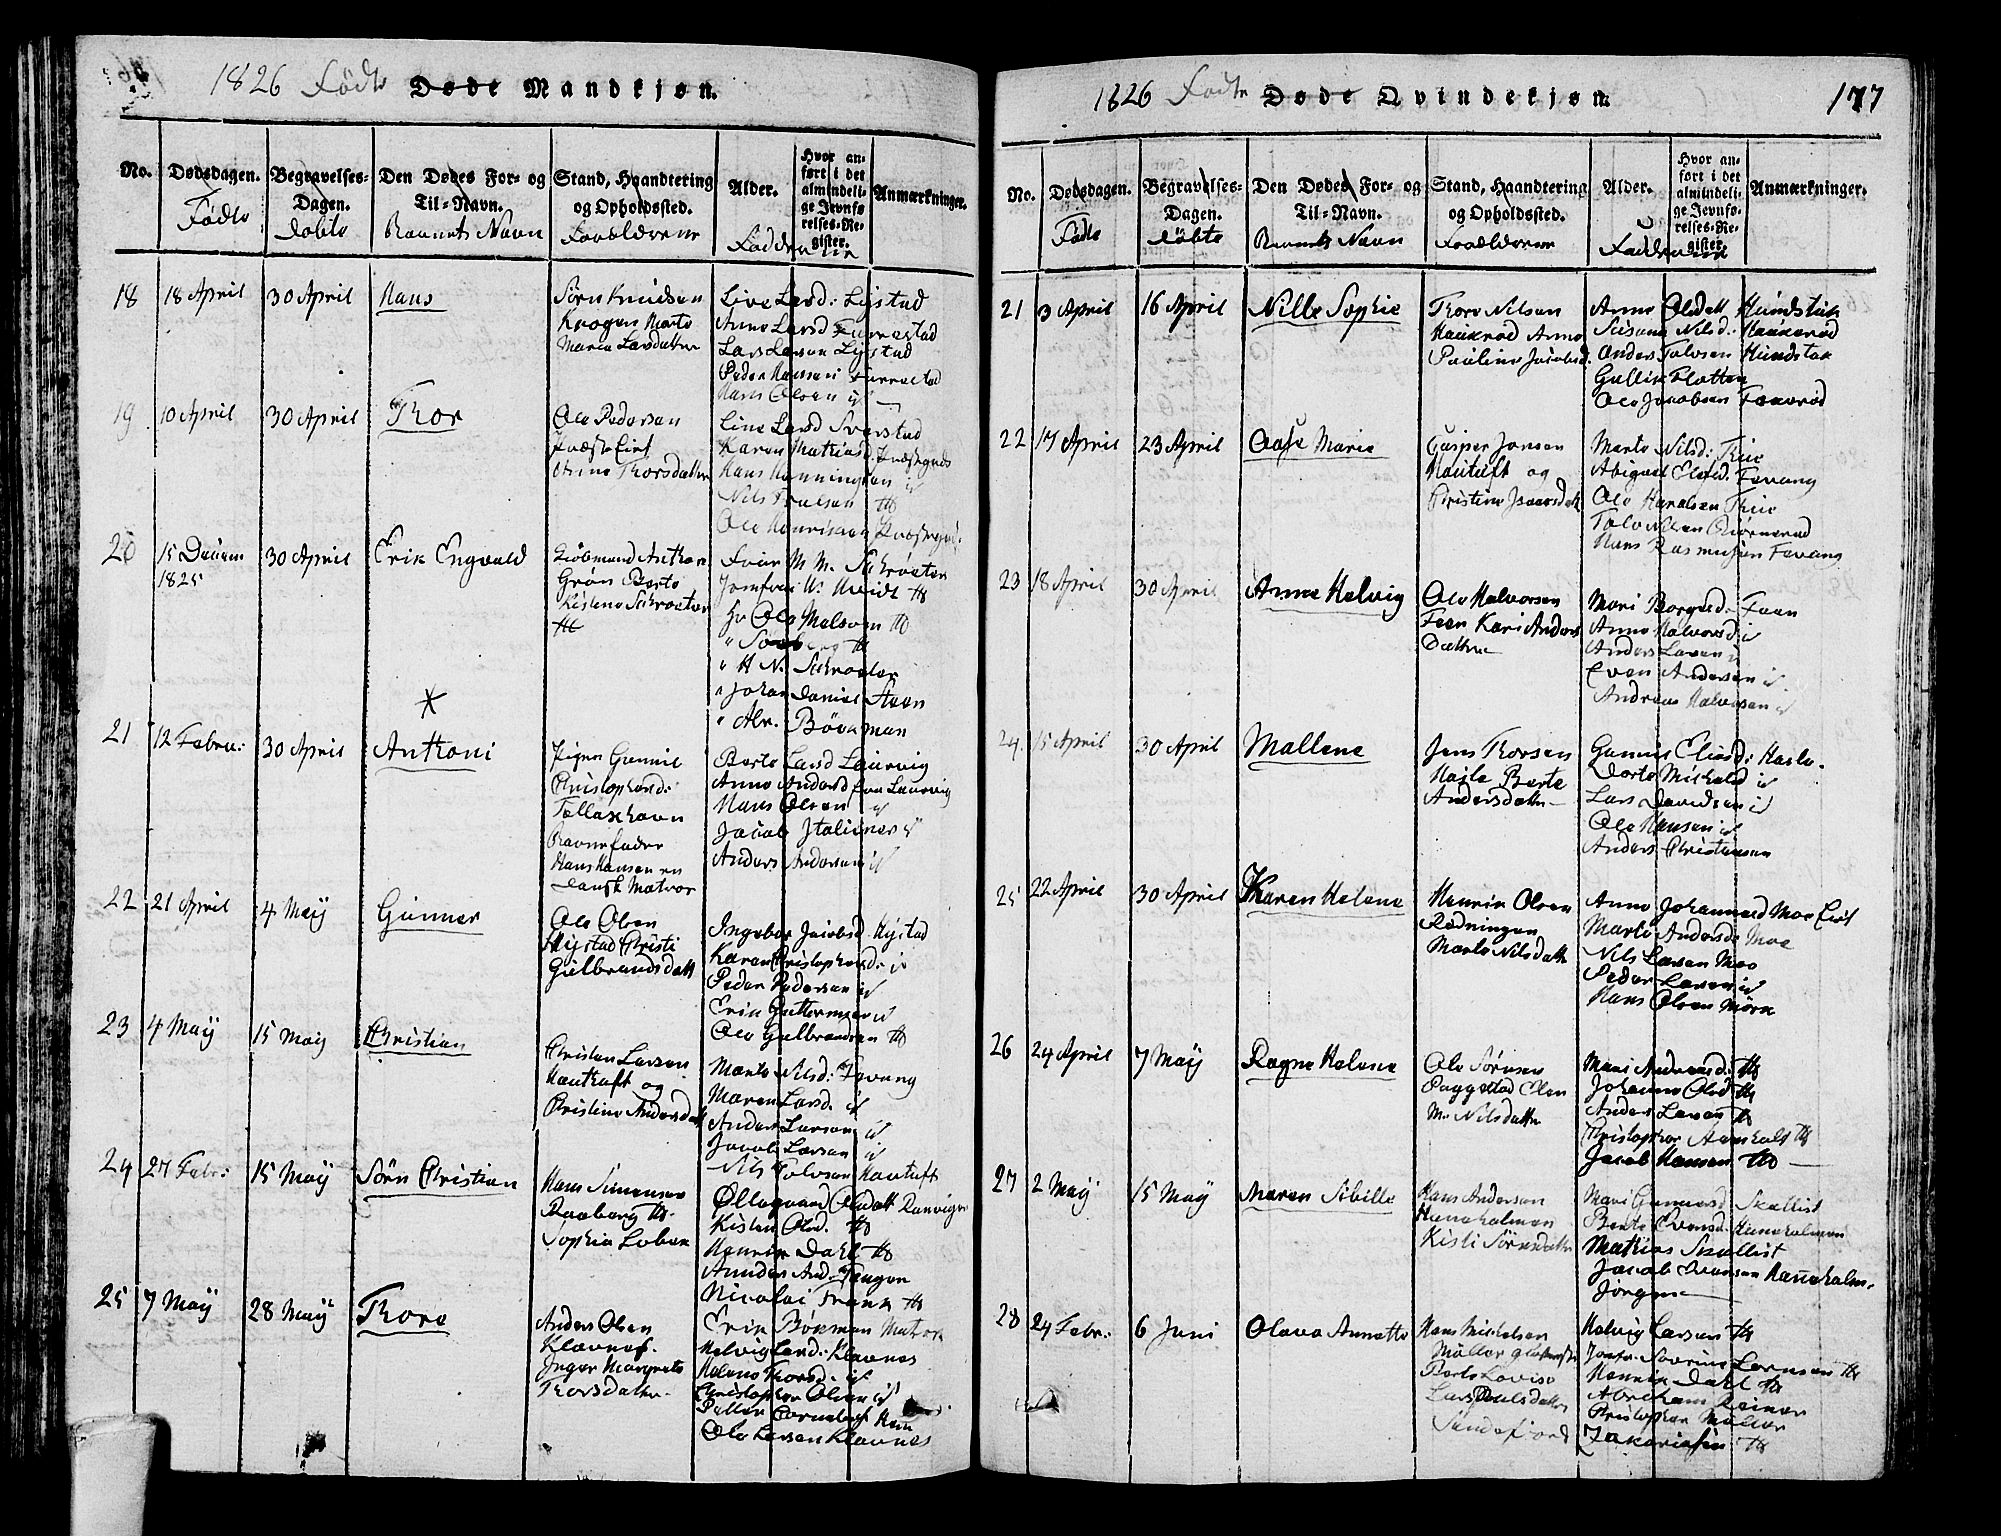 1826 Fødte Døde Mandkjøn.
No.
Dødsdagen. Fødte
Begravelses-Dagen. døbte
Den Dødes For- og Til-Navn. Barnets Navn
Stand, Haandtering og Opholdssted. Forældrene
Alder. Fadderne
Hvor anført i det almindelige Jevnførelses-Register.
Anmærkninger.
18 18 April 30 April Hans
Sørn Knudsen
Krogen Marte
Maria Larsdatter
Live Larsd: Lystad
Anne Larsd Furrestad
Lars Larsen Lystad
Peder Hansen Furrestad
Hans Olsen id
19 10 April 30 April Thor
Ole Pedersen
Anne Thorsdatter
Line Larsd
Karen Mathiasd.
Hans Henningsen id
Nils Troelsen
Ole Henriksen
20 15 Decem 1825 30 April Erik Engvald
Kiøbmand Anthon
Grøn Berte
Kistene Schrøeter
Fruer M M. Schrøeter
Jomfrue W. Hvidt
Hr Ole Melsom
" H N. Schrøeter
" Johan Daniel Steen
" Alr. Böckman
*
21 12 Febru: 30 April Anthoni
Pigen Gunnil
Christophersd:
Barnefader
Hans Hansen en
Dansk Matros
Berte Larsd Laurvig
Anne Andersd fra Laurvig
Hans Olsen id
Jacob Italiener id
Anders Andersen id
22 21 April 4 Maÿ Gunner
Ole Olsen
Hystad Christi
Gulbrandsdatt
Ingebor Jacobsd. Hystad
Karen Christophersd: id
Peder Pedersen id
Erik Guttormsen id
Ole Gulbrandsen
23 4 Maÿ 15 Maÿ Christian
Christen Larsen
Houtuft og
Christine Andersdatt
Marte Nilsd: Fevang
Maren Larsd. id
Anders Larsen id
Jacob Larsen id
Nils Tolvsen Houtuft
24 27 Febr: 15 Maÿ Sörn Christian
Hans Simensen
Raaberg
Sophia Loben
Ollegaard Olsdatt Ranvigen
Kisten Olsd.
Henrik Dahl
Anders And: Tangen
Nicolai Frank
25 7 Maÿ 28 Maÿ Thore
Anders Olsen
Klavnes.
Inger Margrete
Thorsdatter
Erik Bøkman Matros
Helvig Larsd: Klavnes
Helene Thorsd: id
Christopher Olsen id
Ole Larsen Klavnes
1826 Fødte Døde Qvindekjøn. 177
No.
Dødsdagen. Fødte
Begravelses-Dagen. døbte
Den Dødes For- og Til-Navn. Barnets Navn
Stand, Haandtering og Opholdssted. Forældrene
Alder. Fadderne
Hvor anført i det almindelige Jevnførelses-Register.
Anmærkninger.
21 3 April 16 April Nille Sophie
Thore Nilsen
Haukrød Anne
Pauline Jacobsd.
Anne Olsdatt Hundstok
Susana Nilsd: Haukerød
Anders Tolvsen Hundstok
Gullik Flotten
Ole Jacobsen
22 17 April 23 April Aase Marie
Casper Jonsen
Houtuft og
Christine Isaacsdatt
Marte Nilsd: Thue
Abigael Olsd. Fevang
Ole Hansen Thue
Hans Rasmusen Fevang
23 18 April 30 April Anne Helvig
Ole Halvorsen
Feen Kari Anders
Datter
Mari Borgersd: Feen
Anne Halvorsd: id
Anders Larsen id
Even Andersen id
Andreas Halvorsen id
24 15 April 30 April Mallene
Jens Thorsen
Hasle Berte
Andersdatter
Gunnil Eliasd: Hasle.
Dorte Mickelsd id
Lars Davidsen id
Ole Hansen id
Anders Christiansen
25 22 April 30 April Karen Helene
Henrik Olsen
Rødningen
Marte Nilsdatter
Anne Johannesd Moe Eiet
Marte Andersd. Moe
Nils Larsen Moe
Peder Larsen id
Hans Olsen Mörk
26 24 April 7 Maÿ Ragne Helene
Ole Sörnsen
Paggestad Elen
M: Nilsdatter
Mari Andreasd:
Johanne Olsd
Anders Larsen
Christopher Aanholt
Jacob Hansen
27 2 Maÿ 15 Maÿ Maren Sibille
Hans Andersen
Huneholmen
Kisti Sörnsdatter
Mari Gunnersd Skallist
Berte Evensd. Huneholmen
Mathias Skallist
Jacob Evensen Huneholm.
Jörgine
28 24 Febr: 6 Juni Olava Annette
Hans Mickelsen
Möller
Berte Lovise
Lars Poulsdatter
Sandefiord
Helvig Larsen
Jomfr. Severine Lorensen
Henrik Dahl
Abraham Reiner
Christopher Möller
Zakariasen